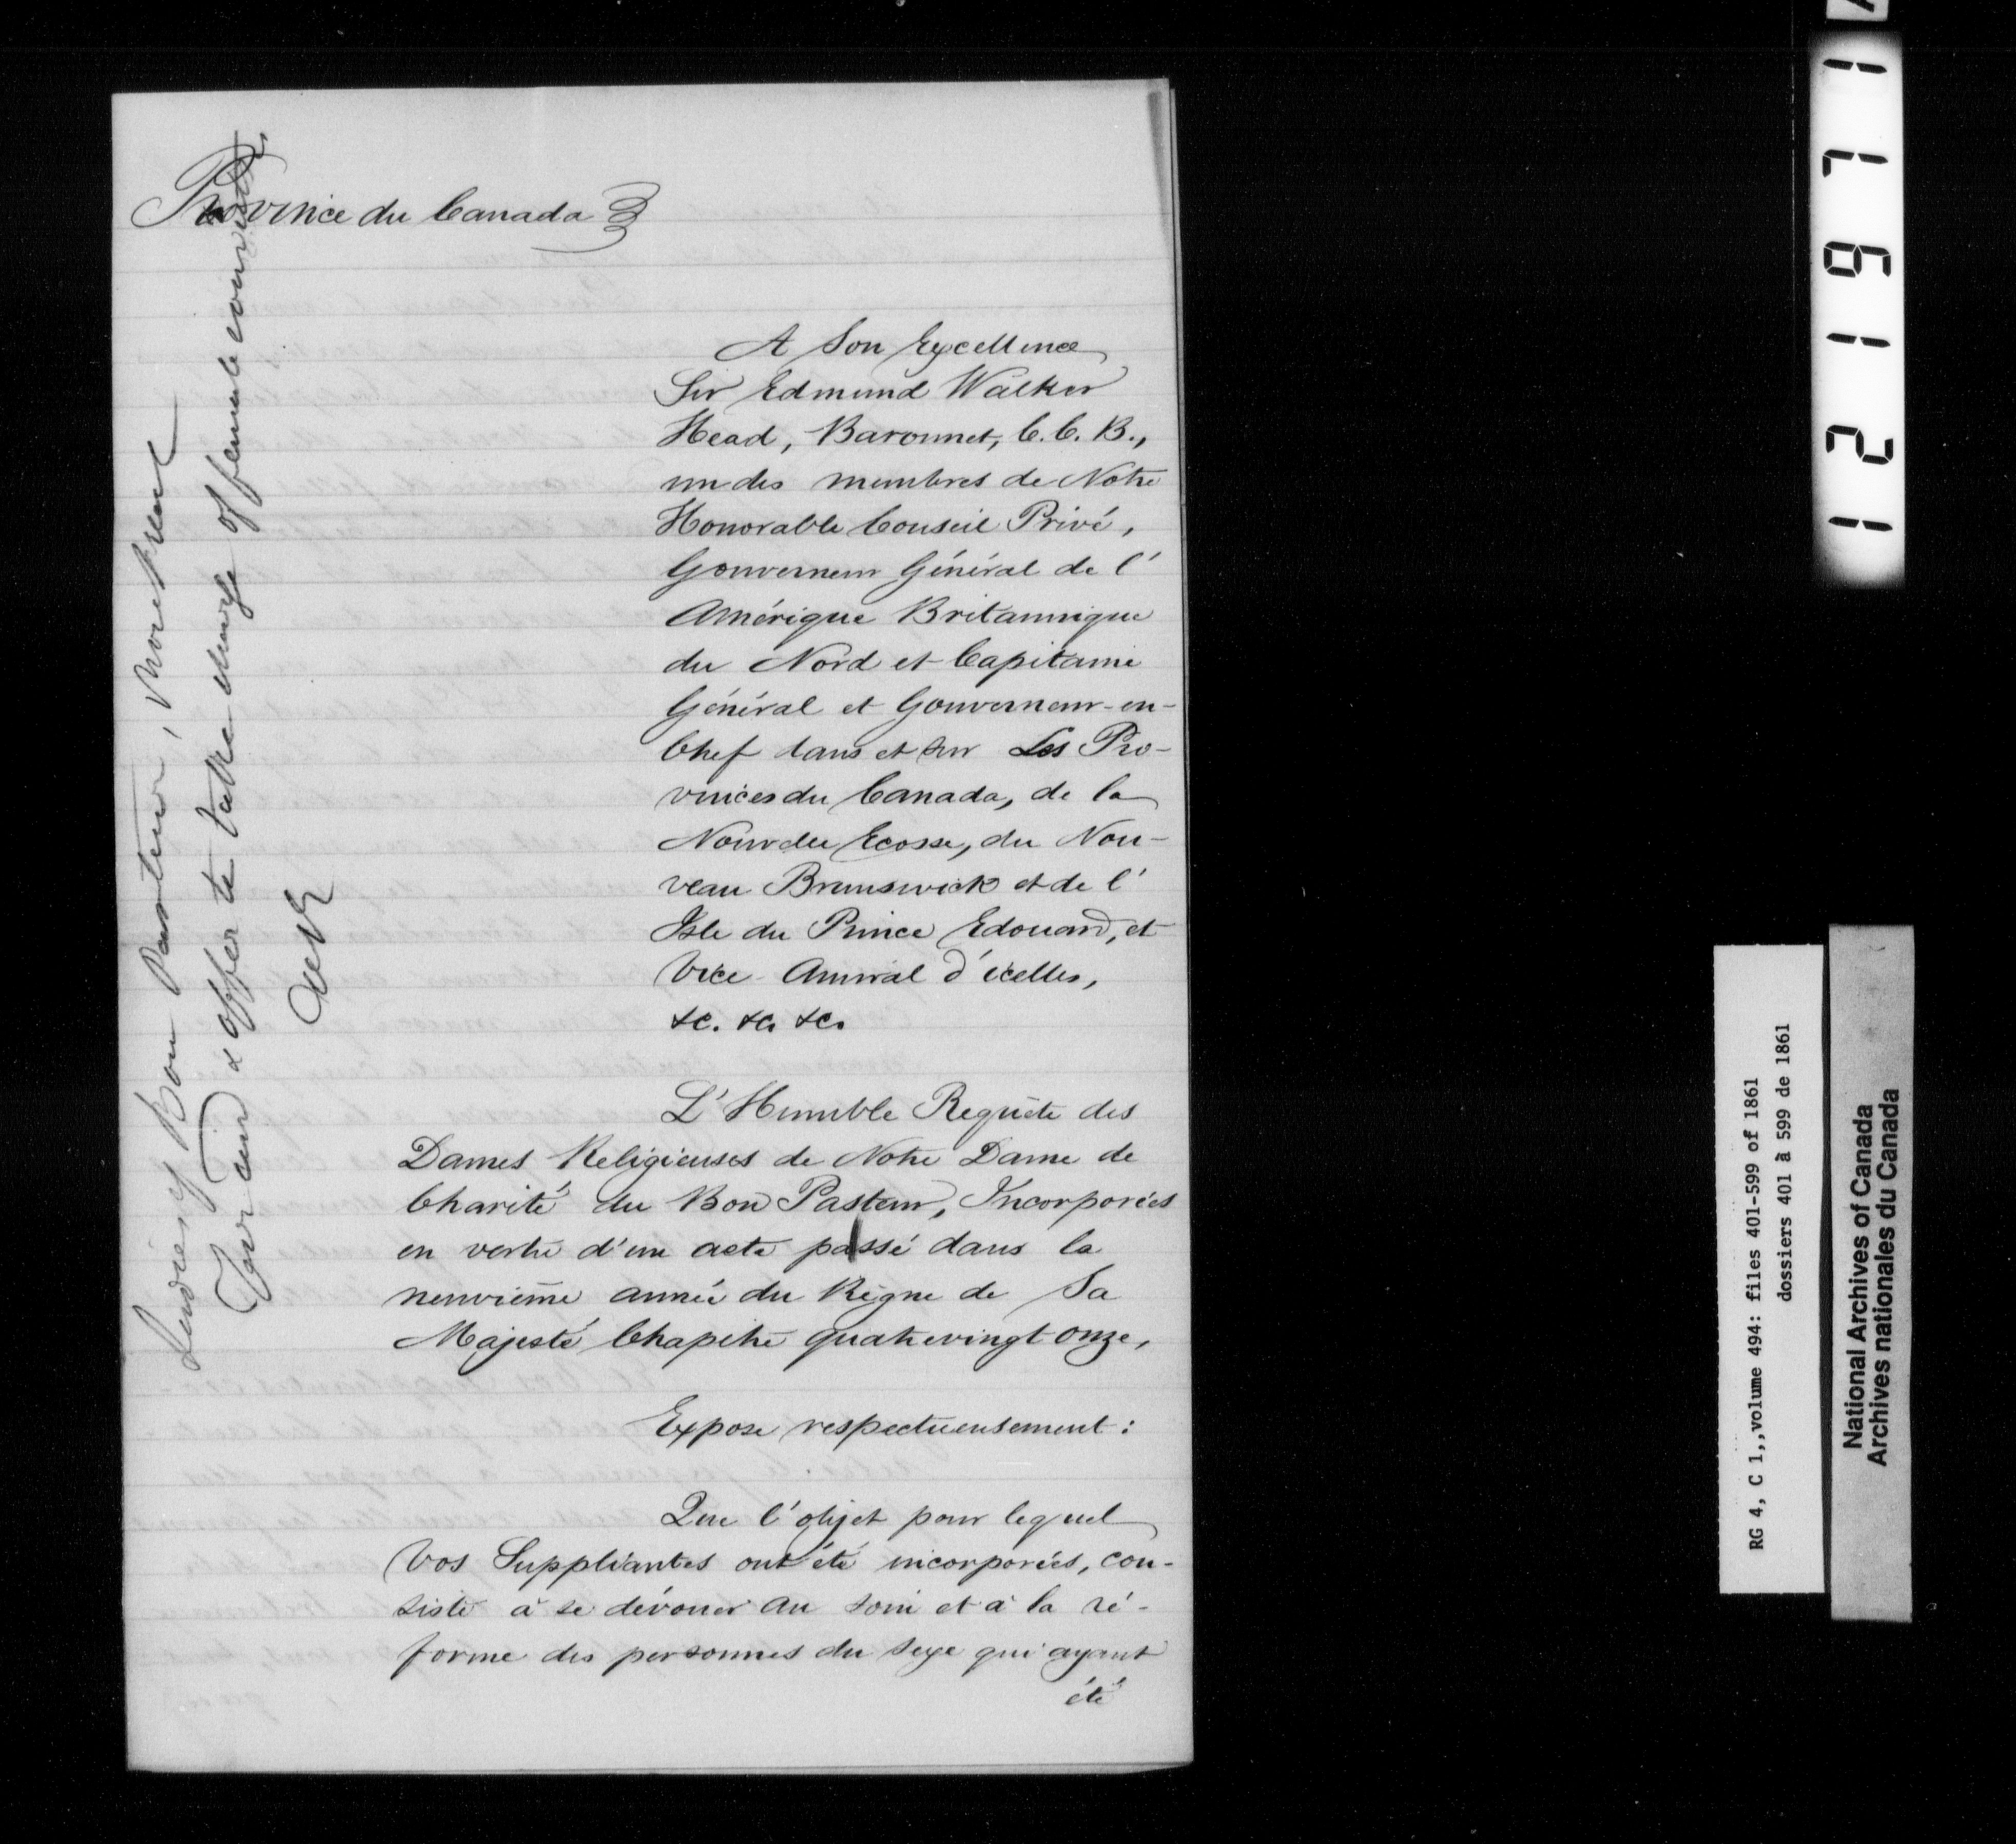 Province du Canada
A Son Excellence
Sir Edmund Walker
Head, Baronnet, C. C. B.,
un des membres de Notre
Honorable Conseil Privé,
Gouverneur Général de l'
Amérique Britannique
du Nord et Capitaine
Général et Gouverneur-en-
Chef dans et sur Les Pro-
vinces du Canada, de la
Nouvelle Ecosse, du Nou-
veau Brunswick et de l'
Isle du Prince Edouard, et
Vice Amiral d'icelles,
&c. &c. &c.
L'Humble Requête des
Dames Religieuses de Notre Dame de
Charité du Bon Pasteur, Incorporées
en vertu d'un acte passé dans la
neuvième année du Règne de Sa
Majesté Chapitre quatrevingt onze,
Expose respectueusement :
Que l'objet pour lequel
Vos Suppliantes ont été incorporées, con-
siste à se dévouer au soin et à la ré-
forme des personnes du sexe qui ayant
été
Bon Pasteur, Montreal
for aid & offer to take charge of female convicts
RG 4, C 1,,volume 494: files 401-599 of 1861
dossiers 401 à 599 de 1861
National Archives of Canada
Archives nationales du Canada
121971